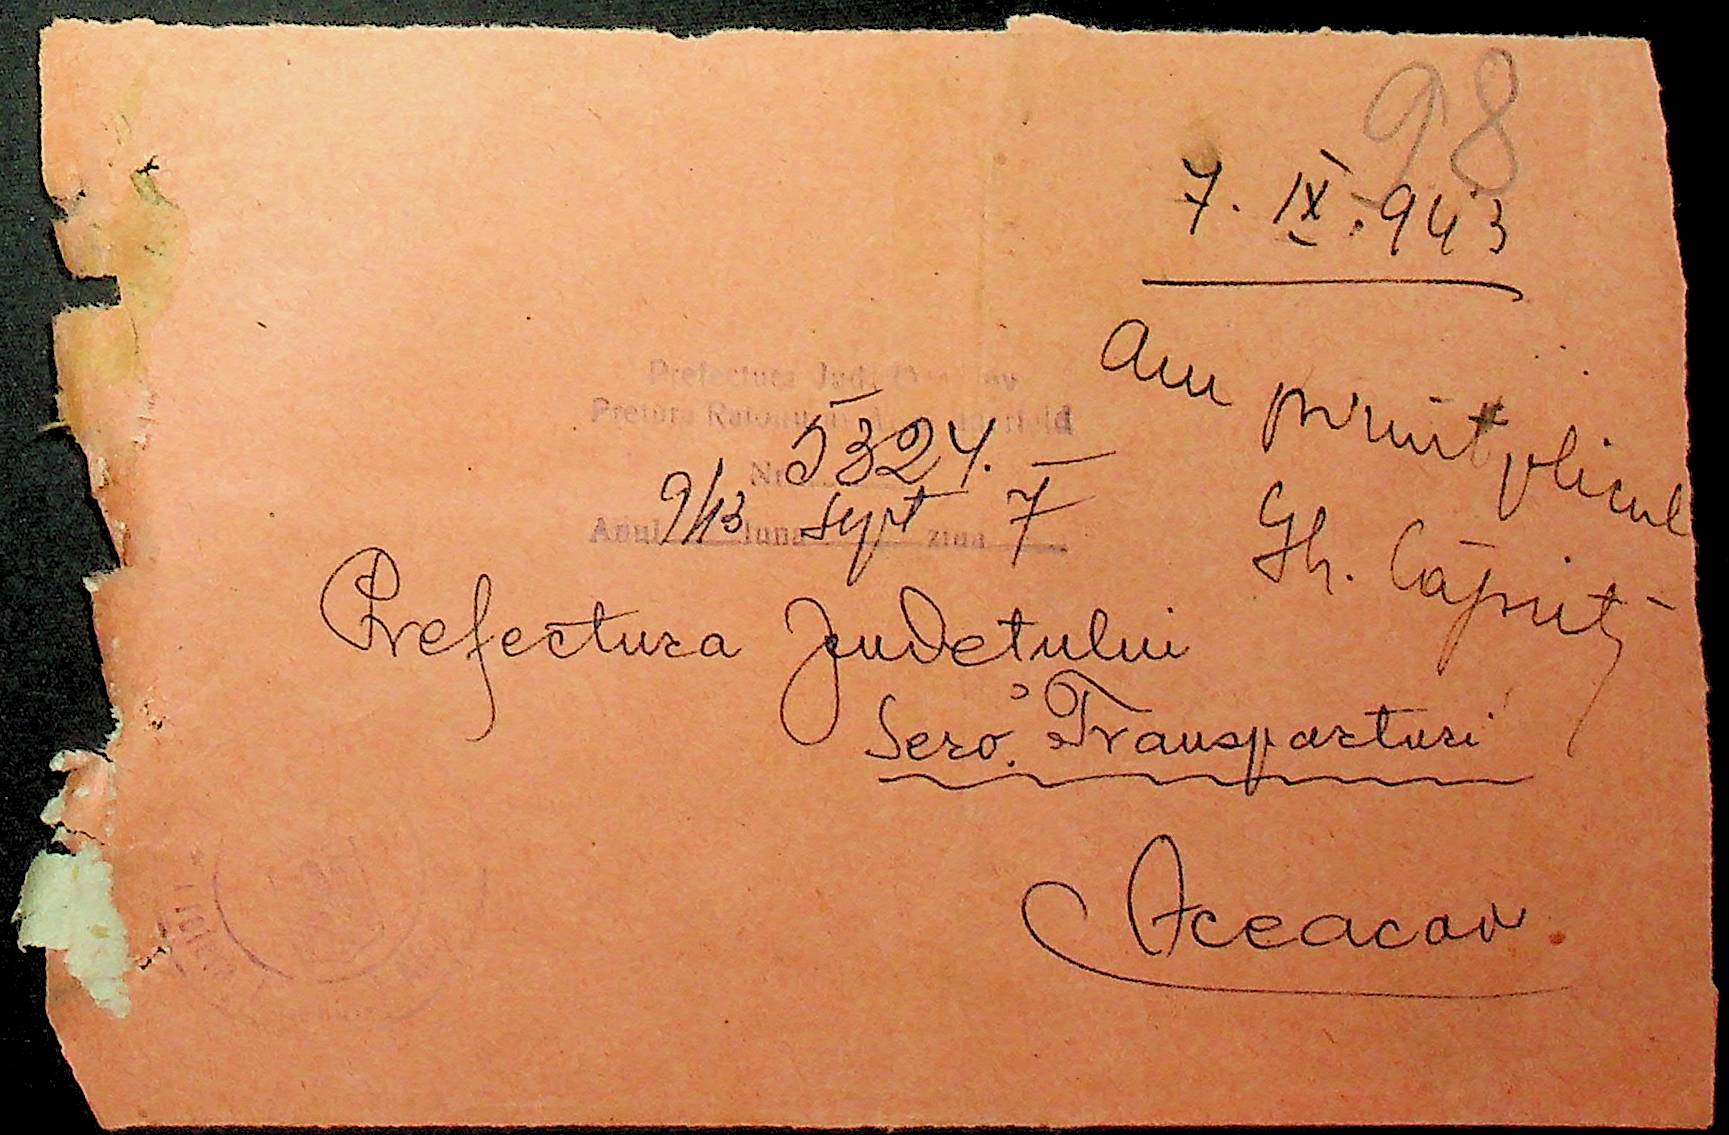 98
7. IX. 943
Am primit plicul
Gh.
Prefectura Jud.
Pretura Raionului
Nr. 5324.
Anul 943 luna Sept ziua 7
Prefectura Judetului
Serv. Transporturi
Oceacov.